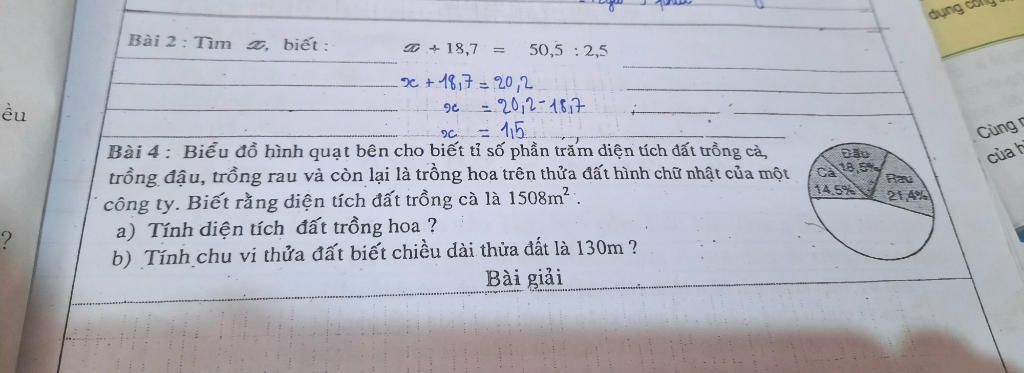 dụng công
Bài 2 : Tìm x, biết : x + 18,7 = 50,5 : 2,5
x + 18,7 = 20,2
x = 20,2 - 18,7
x = 1,5
ều
Cùng
của h
Bài 4 : Biểu đồ hình quạt bên cho biết tỉ số phần trăm diện tích đất trồng cà,
trồng đậu, trồng rau và còn lại là trồng hoa trên thửa đất hình chữ nhật của một
công ty. Biết rằng diện tích đất trồng cà là 1508m².
a) Tính diện tích đất trồng hoa ?
b) Tính chu vi thửa đất biết chiều dài thửa đất là 130m ?
Đậu
18,5%
Cà
14,5%
Rau
21,4%
?
Bài giải